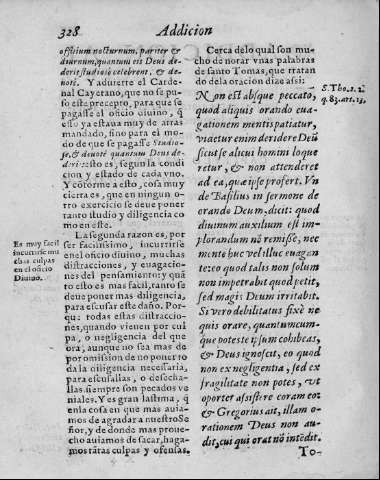 328 Addicion
officium nocturnum, pariter &
diurnum, quantum eis Deus de-
derit studiosè celebrent, & de-
uotè. Y aduierte el Carde-
nal Cayetano, que no se pu-
so este precepto, para que se
pagasse el oficio diuino, q̃
esso ya estaua muy de atras
mandado, sino para el mo-
do de que se pagasse Studio-
sè, & deuotè quantum Deus de-
derit: esto es, segun la condi-
cion y estado de cada vno.
Y cõforme a esto, cosa muy
cierta es, que en ningun o-
tro exercicio se deue poner
tanto studio y diligencia co
mo en este.
La segunda razon es, por
ser facilissimo, incurrirse
en el oficio diuino, muchas
distracciones, y euagaciones
del pensamiento: y quã
to esto es mas facil, tanto se
deue poner mas diligencia,
para escusar este daño. Por-
que todas estas distraccio-
nes, quando vienen por cul
pa, o negligencia del que
ora, aunque no sea mas de
por omission de no poner to
da la diligencia necessaria,
para escusallas, o desecha-
llas, siempre son pecados ve
niales. Y es gran lastima, q̃
en la cosa en que mas auia-
mos de agradar a nuestro Se
ñor, y de donde mas proue-
cho auiamos de sacar, haga-
mos tãtas culpas y ofensas.
Es muy facil
incurrirse mu
chas culpas
en el oficio
Diuino.
Cerca de lo qual son mu-
cho de notar vnas palabras
de santo Tomas, que tratan
do de la oracion dize assi:
Non est absque peccato,
quod aliquis orando eua-
gationem mentis patiatur,
videtur enim deridere Deũ
sicut se alicui homini loque
retur, & non attenderet
ad ea, quæ ipse profert. Vn
de Basilius in sermone de
orando Deum, dicit: quod
diuinum auxilium est im-
plorandum nõ remissè, nec
mente huc vel illuc euagan
te: eo quod talis non solum
non impetrabit quod petit,
sed magis Deum irritabit.
Si verò debilitatus fixè ne
quis orare, quantumcum-
que potes te ipsum cohibeas,
& Deus ignoscit, eo quod
non ex negligentia, sed ex
fragilitate non potes, vt
oportet assistere coram eo:
& Gregorius ait, illam o-
rationem Deus non au-
dit, cui qui orat nõ intẽdit.
To-
S. Tho. 2. 2.
q. 83. art. 13.